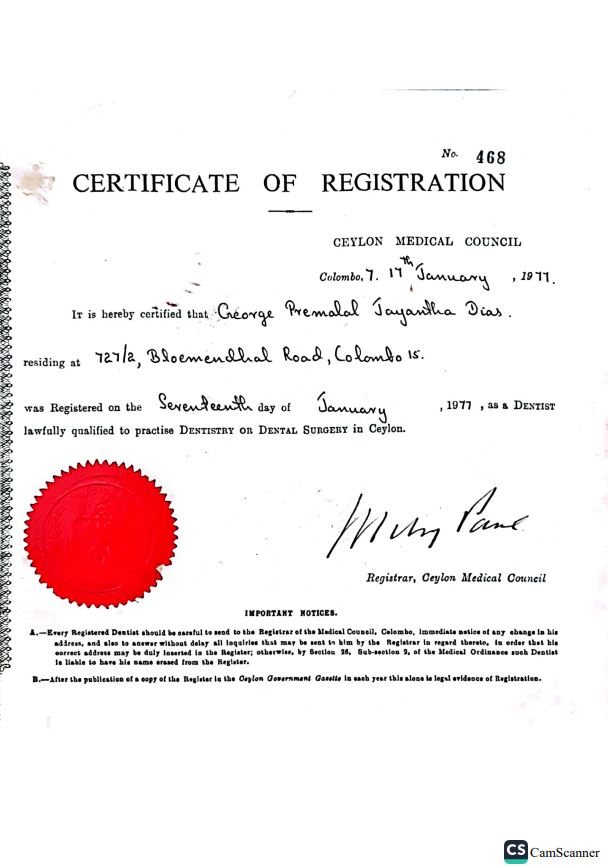 No. 468
CERTIFICATE OF REGISTRATION
CEYLON MEDICAL COUNCIL
Colombo, 7. 17th January , 1977.
IT is hereby certified that George Premalal Jayantha Dias.
residing at 727/2, Bloemendhal Road, Colombo 15.
was Registered on the Seventeenth day of January , 1977 , as a DENTIST
lawfully qualified to practise DENTISTRY OR DENTAL SURGERY in Ceylon.
Registrar, Ceylon Medical Council
IMPORTANT NOTICES.
A.—Every Registered Dentist should be careful to send to the Registrar of the Medical Council, Colombo, immediate notice of any change in his
address, and also to answer without delay all inquiries that may be sent to him by the Registrar in regard thereto, in order that his
correct address may be duly inserted in the Register; otherwise, by Section 26, Sub-section 2, of the Medical Ordinance such Dentist
is liable to have his name erased from the Register.
B.—After the publication of a copy of the Register in the Ceylon Government Gazette in each year this alone is legal evidence of Registration.
CS CamScanner